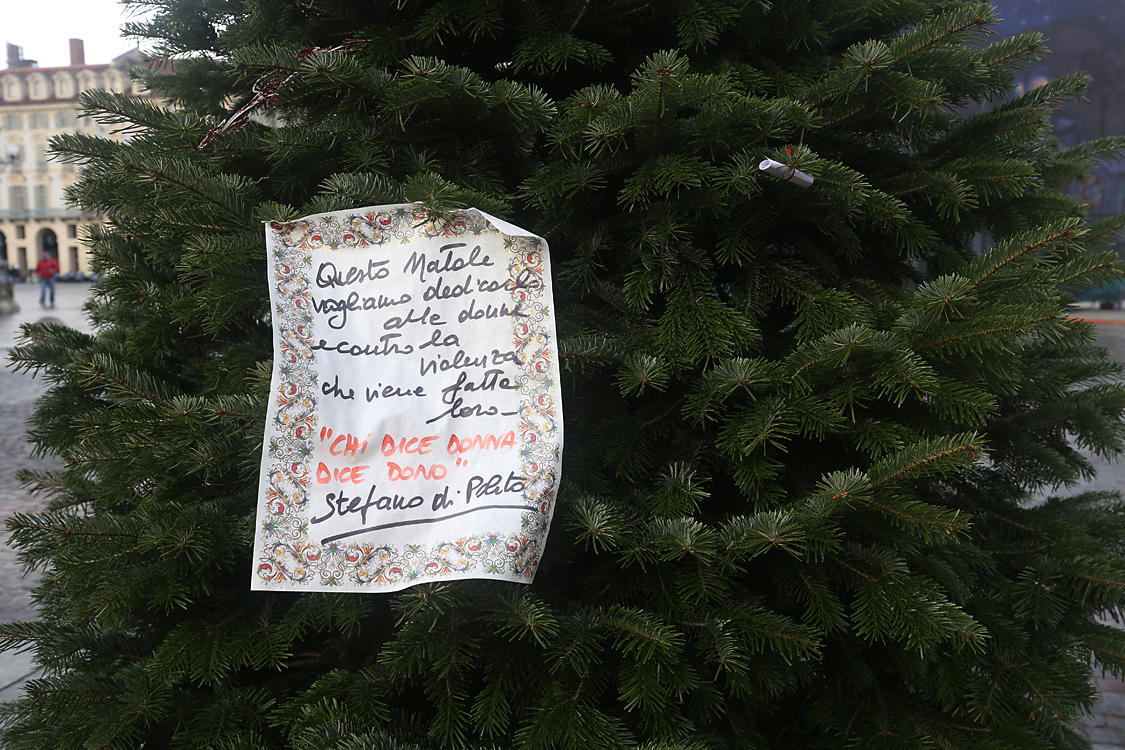 Questo Natale
vogliamo dedicarlo
alle donne
e contro la
violenza
che viene fatta
loro -
"CHI DICE DONNA
DICE DONO"
Stefano di